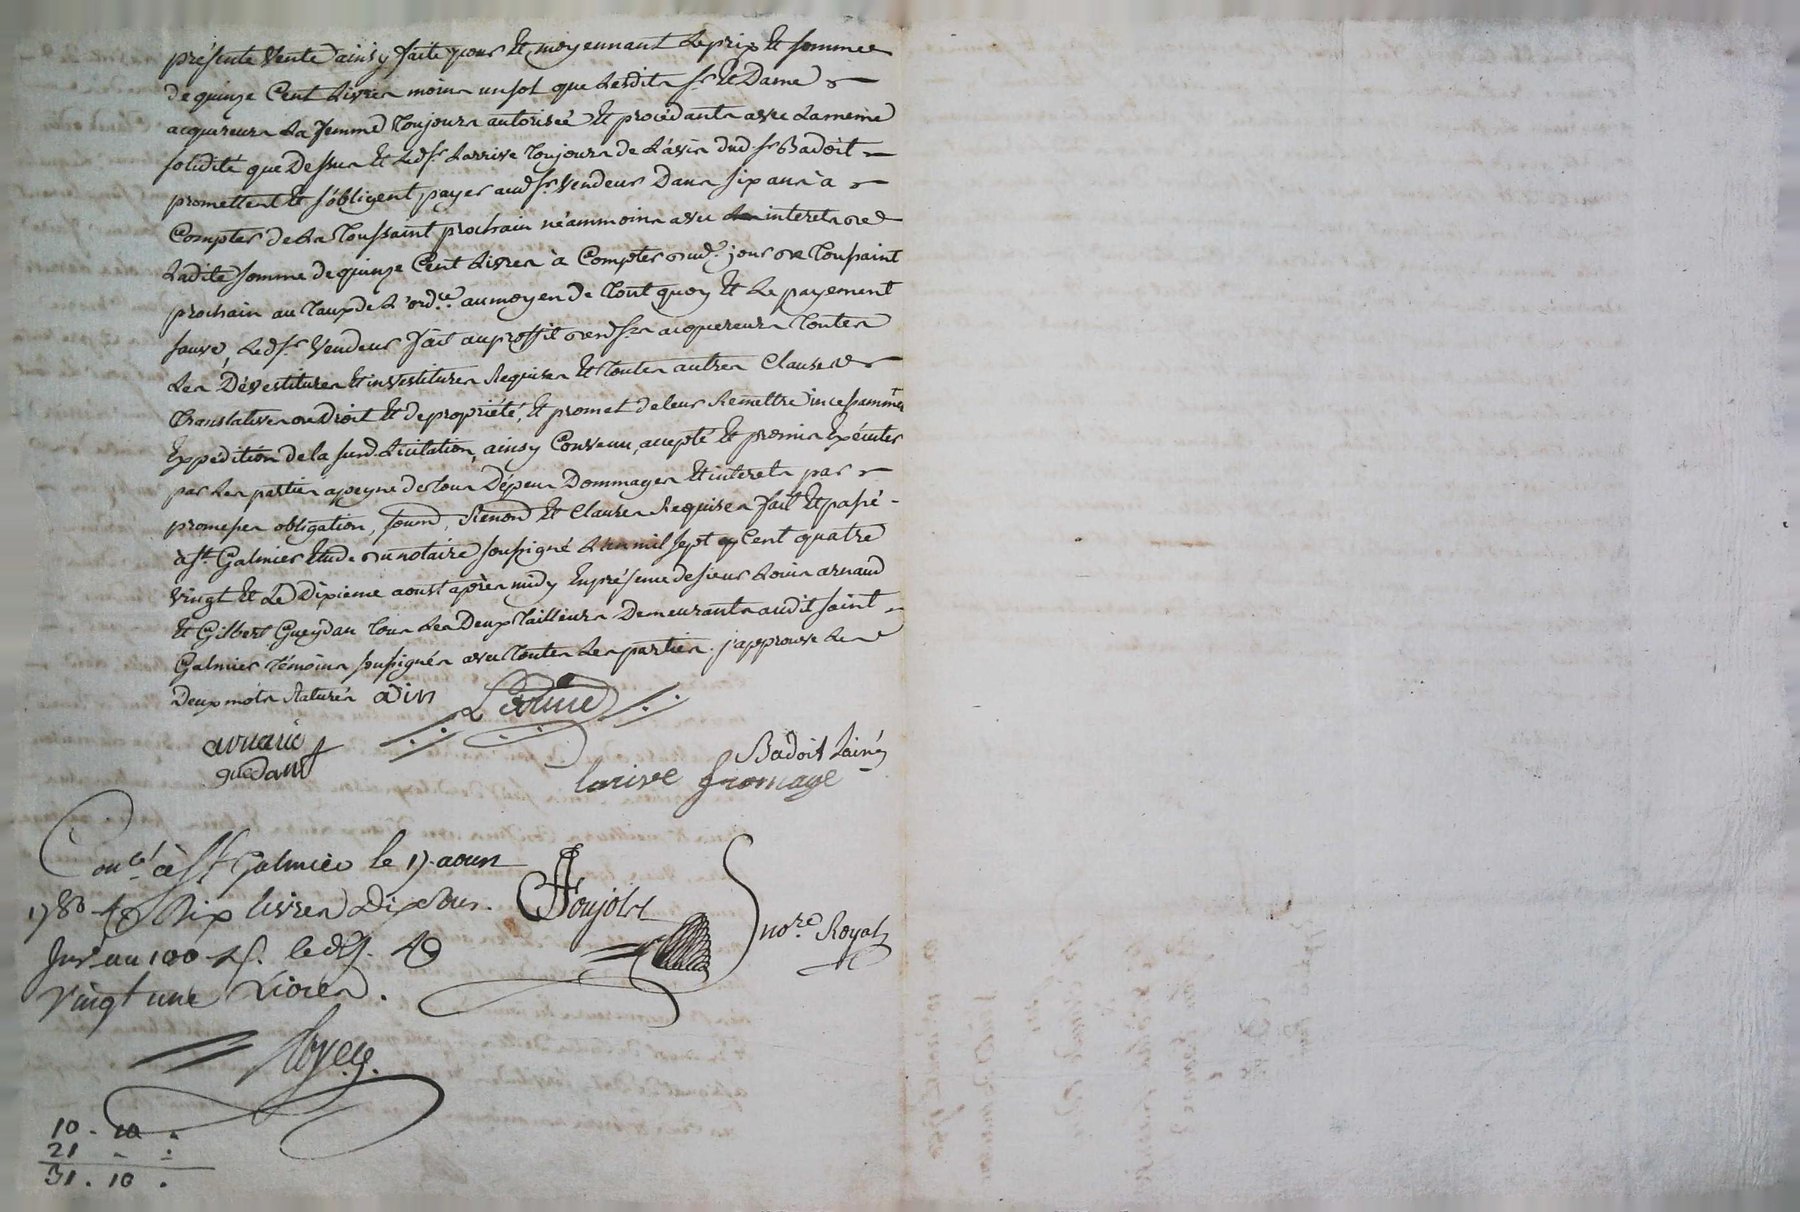 présente Vente ainsy faite pour Et moyennant Le prix Et somme
de quinze Cent Livres moins un sol que Lesdits sr. Et Dame
acquereurs La femme Toujours autorisée Et procédants avec La meme
solidité que Dessus Et Led. sr. Larrive Toujours de L'avis dud. sr Badoit
promettent Et s'obligent payer aud. sr. Vendeur Dans six ans à
Compter de La Toussaint prochain néammoins avec interets de
Ladite somme de quinze Cent Livres à Compter dud. jour de Toussaint
prochain au Taux de L'ord.ce au moyen de Tout quoy Et Le payement
sauve, Led. sr. Vendeur fait au proffit desd. srs acquereurs Toutes
Les Dévestitures Et investitures Requises Et Toutes autres Clauses
Translatives de Droit Et de propriété, Et promet de leur Remettre incessammt
Expédition de la susd. Licitation, ainsy Convenu, accepté Et promis Exécuter
par Les parties apeyne de Tous Dépens Dommages Et interets par
promesses obligation, soumd. Renond Et Clauses Requises fait Et passé
à St. Galmier Etude du notaire soussigné L'an mil sept Cent quatre
Vingt Et Le Dixieme aoust après midy En présence de sieurs Louis arnaud
Et Gilbert Gueydan Tous Les Deux Tailleurs Demeurants audit saint
Galmier Témoins soussignés avec Toutes Les parties. j'approuve Les
Deux mots Raturés
arnaud
guedant
Badoit Lainé
larive fromage
Conlé à St Galmier le 17 aoust
1780 Dix livres Dix sous.
Jnsé au 100 d. led. j.
Vingt une Livres.
Poujols
nore. Royal
10 . 10 .
21 . :
31 . 10 .